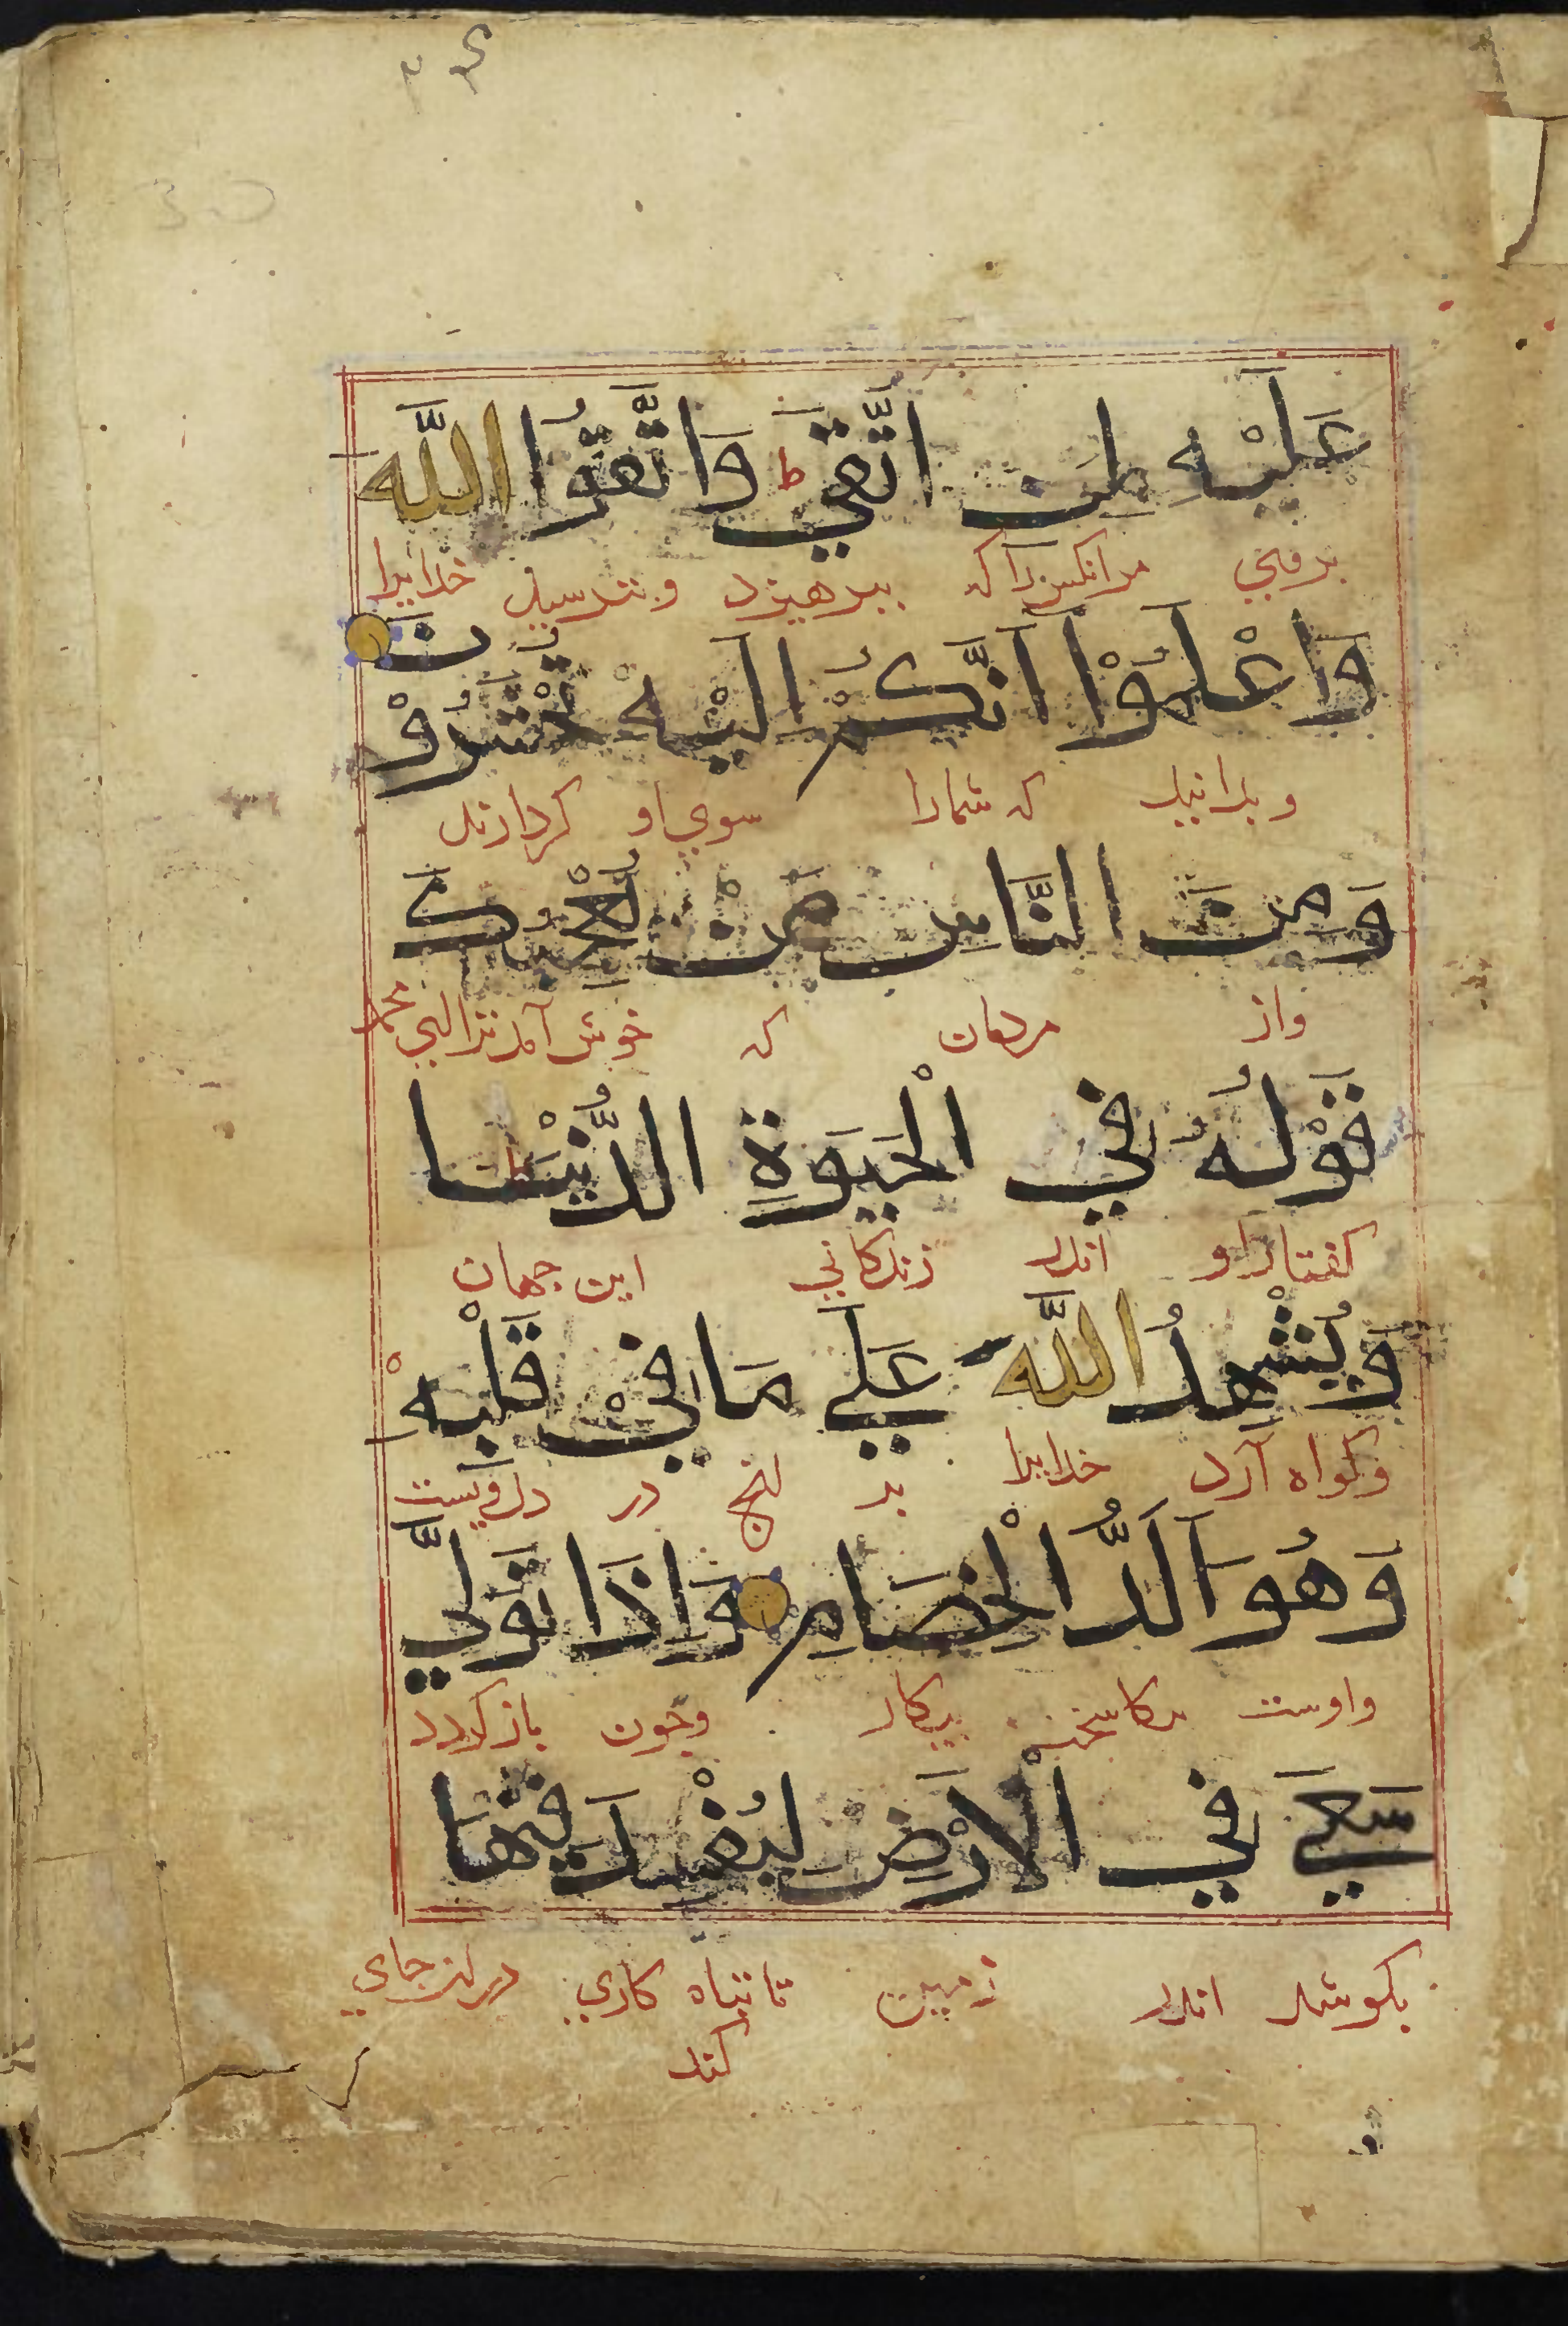 عَلَيْهِ لِمَنِ اتَّقَيَ ط وَاتَّقُوا اللَّه
بروی مرانکس را که بپرهیزد وبترسید خدایرا
وَاعْلَمُوْا اَنَّكُمْ اِلَيْهِ تُحْشَرُوْنَ
وبدانید که شمارا سوی او کرد ارند
وَمِنَ النَّاسِ مَنْ يُعْجِبُكَ
واز مردمان که خوش آمد ترا ای محمد
قَوْلُهُ فِي الْحَيَوةِ الدُّنْيَا
کفتار او اندر زندکانی این جهان
وَيُشْهِدُ اللَّهَ عَلَي مَا فِيْ قَلْبِهْ
وکواه آرد خدایرا بر انچ در دل ویست
وَهُوَ اَلَدُّ الْخِصَامِ وَاِذَا تَوَلَّي
واوست بیکار وچون باز کردد
سَعَي فِي الْاَرْضِ لِيُفْسِدَ فِيْهَا
بکوشد اندر زمین تا تباه کاری در ان جای
کند